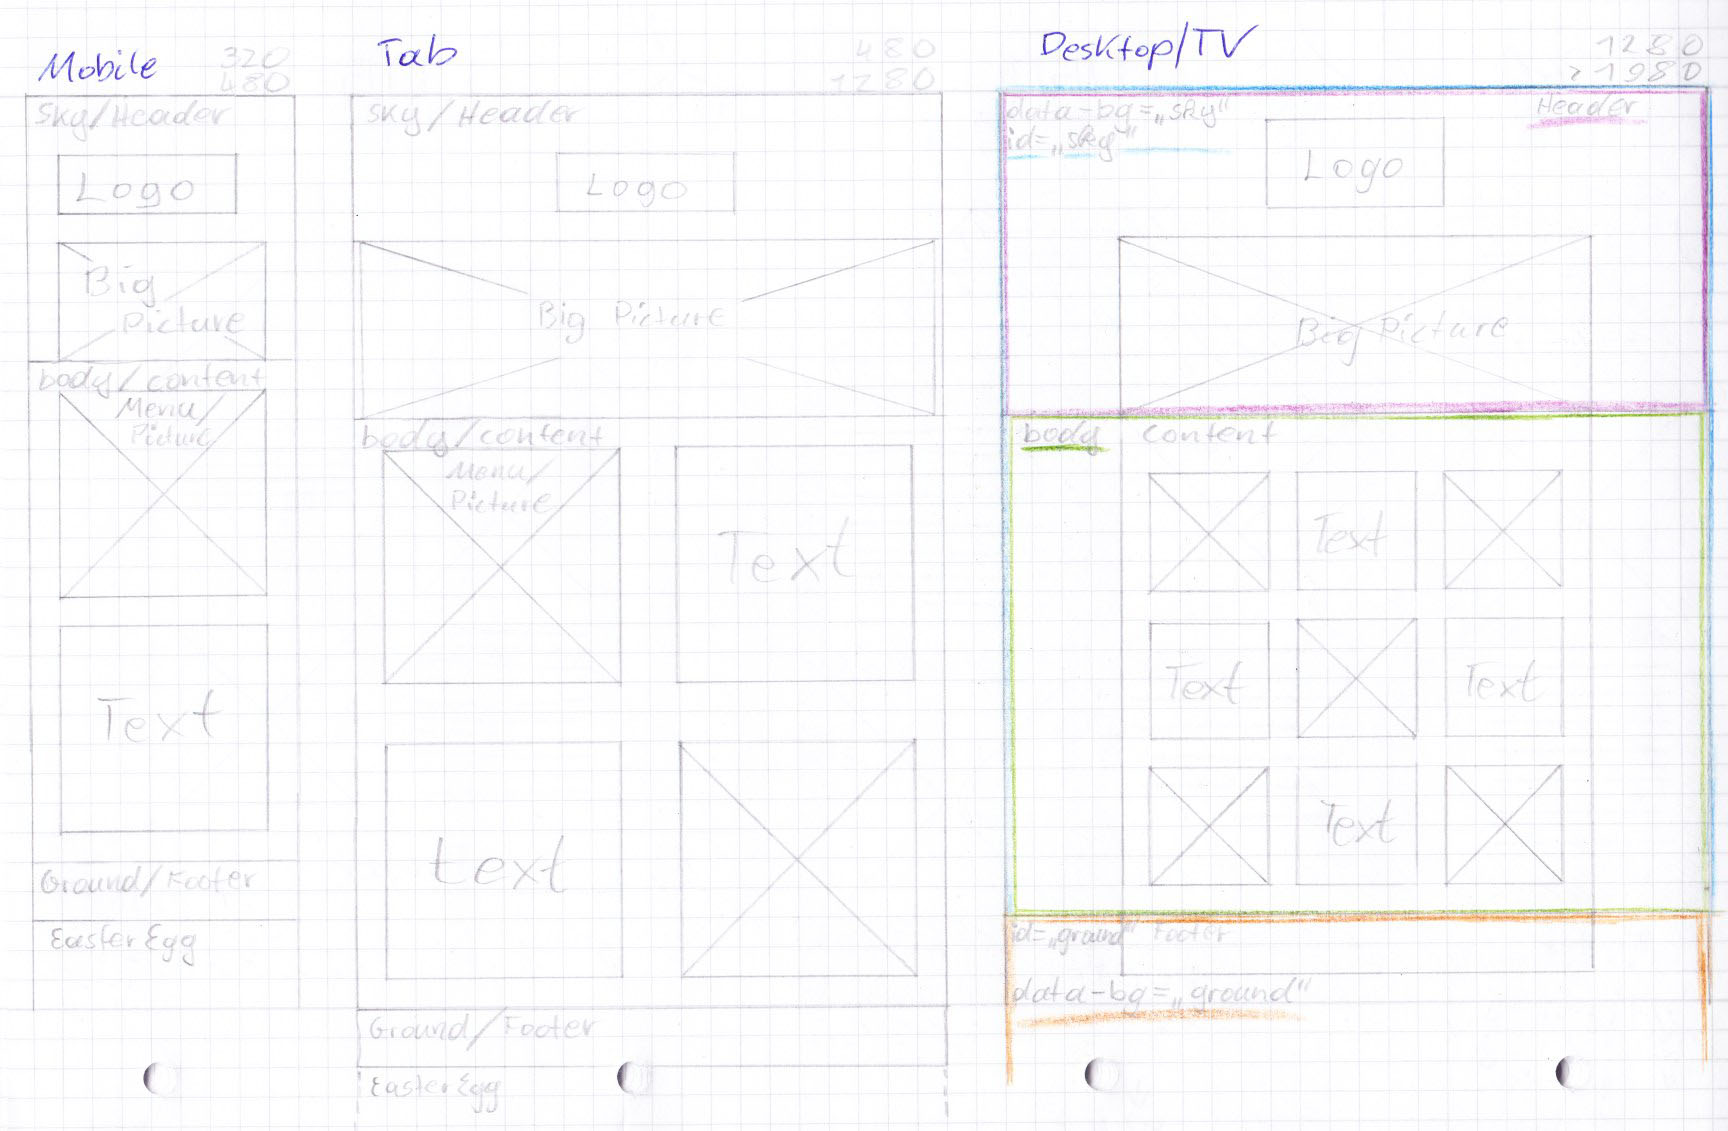 Mobile
320
480
Sky/Header
Logo
Big
Picture
body/content
Menu/
Picture
Text
Ground/Footer
Easter Egg
Tab
480
1280
Sky/Header
Logo
Big Picture
body/content
Menu/
Picture
Text
text
Ground/Footer
Easter Egg
Desktop/TV
1280
>1980
data-bg=„sky“
Header
id=„sky“
Logo
Big Picture
body content
Text
Text
Text
Text
id=„ground“ Footer
data-bg=„ground“